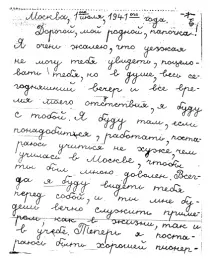 Москва, 1ое июля, 1941ого года.
Дорогой, мой родной, папочка!
Я очень жалею, что уезжая
не могу тебя увидеть, поцело-
вать тебя, но в душе, весь се-
годняшний вечер и все вре-
мя моего отсутствия, я буду
с тобой. Я буду там, если
понадобиться, работать, поста-
раюсь учиться не хуже чем
училась в Москве, чтобы
ты был мною доволен. Всег-
да я буду видеть тебя
перед собой, и ты мне бу-
дешь вечно служить приме-
ром, как в жизни, так и
в учёбе. Теперь я поста-
раюсь быть хорошей пионер-